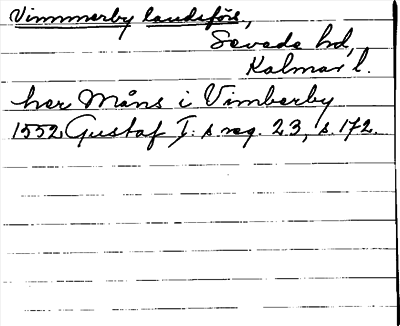 Vimmerby landsförs,
Sevede hd,
Kalmar l.
her Måns i Vimberby
1552 Gustaf I:s reg. 23, s. 172.